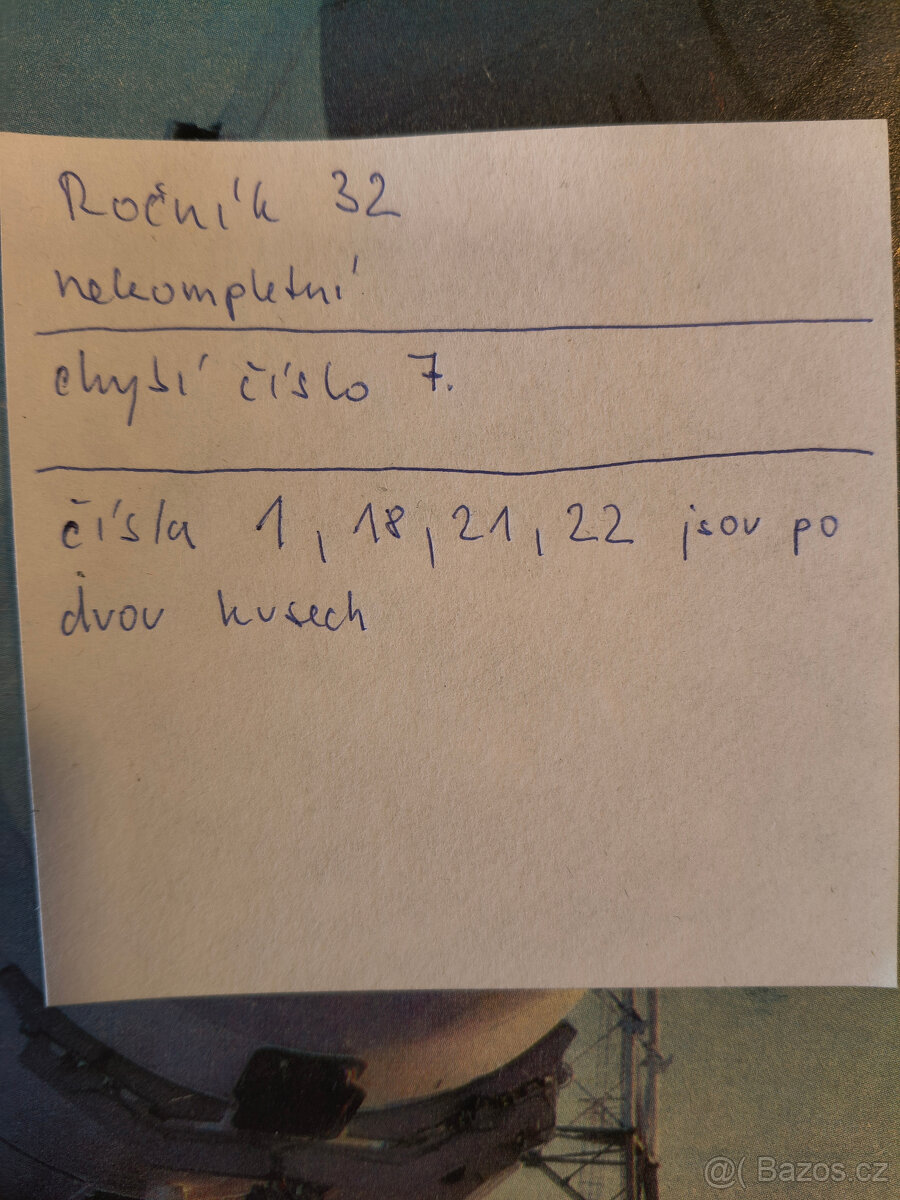 Ročník 32
nekompletní
chybí číslo 7.
čísla 1, 18, 21, 22 jsou po
dvou kusech
@( Bazos.cz